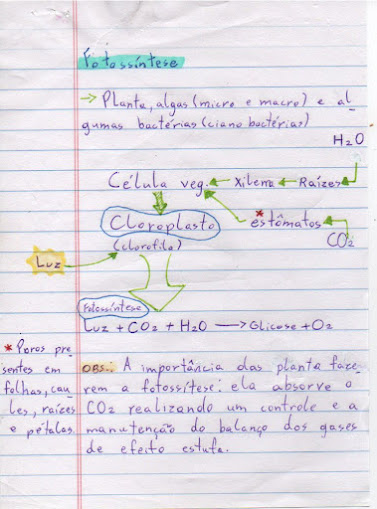 Fotossíntese
→ Planta, algas (micro e macro) e al
gumas bactérias (ciano bactérias)
H₂O
Célula veg. ← Xilema ← Raízes
Cloroplasto
(clorofila)
* estômatos
CO₂
Luz
Fotossíntese
Luz + CO₂ + H₂O → Glicose + O₂
* Poros pre
sentes em
folhas, cau
les, raízes
e pétalas
OBS.: A importância das planta faze
rem a fotossítese: ela absorve o
CO₂ realizando um controle e a
manutenção do balanço dos gases
de efeito estufa.